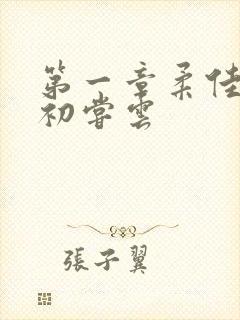 第一章柔佳
初嘗雲
張子翼